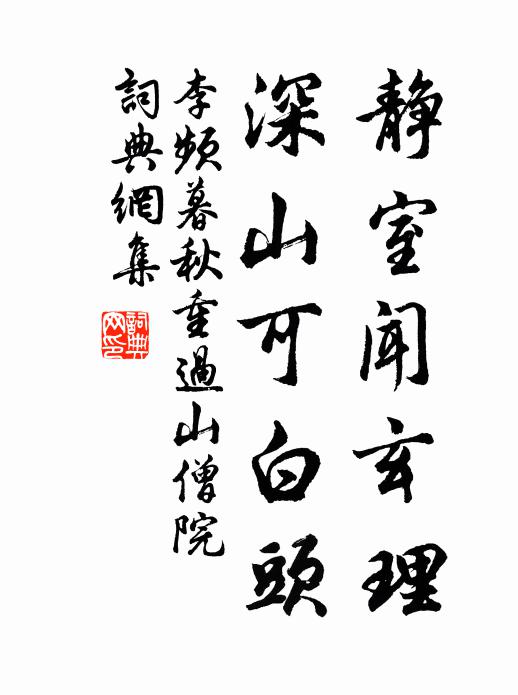 静室闻玄理
深山可白頭
李頻暮秋重過山僧院
詞典網集
詞典网印